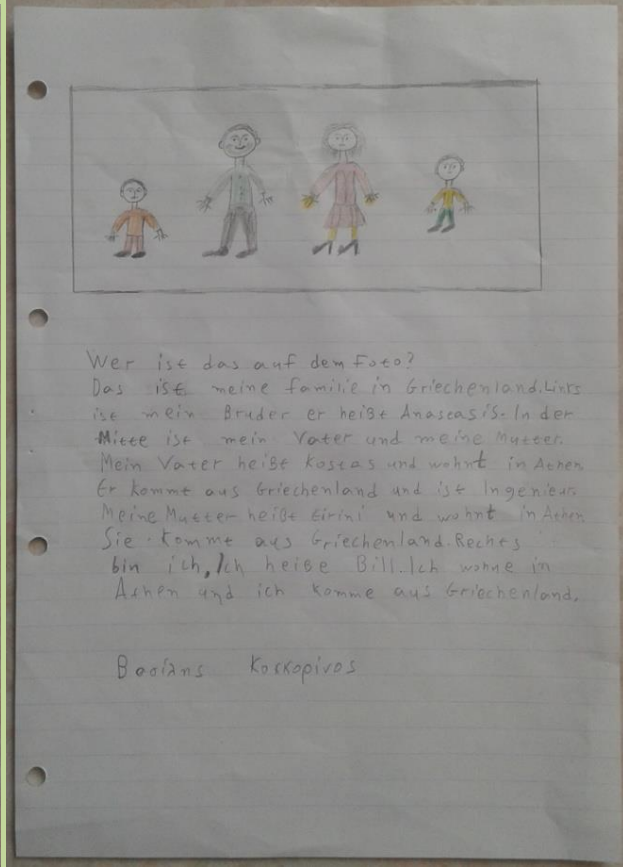 Wer ist das auf dem Foto?
Das ist meine familie in Griechenland. Links
ist mein Bruder er heißt Anastasis. In der
Mitte ist mein Vater und meine Mutter.
Mein Vater heißt Kostas und wohnt in Athen
Er kommt aus Griechenland und ist Ingenieur.
Meine Mutter heißt Eirini und wohnt in Athen
Sie kommt aus Griechenland. Rechts
bin ich, Ich heiße Bill. Ich wohne in
Athen und ich komme aus Griechenland.
Βασίλης Κοσκορίνος